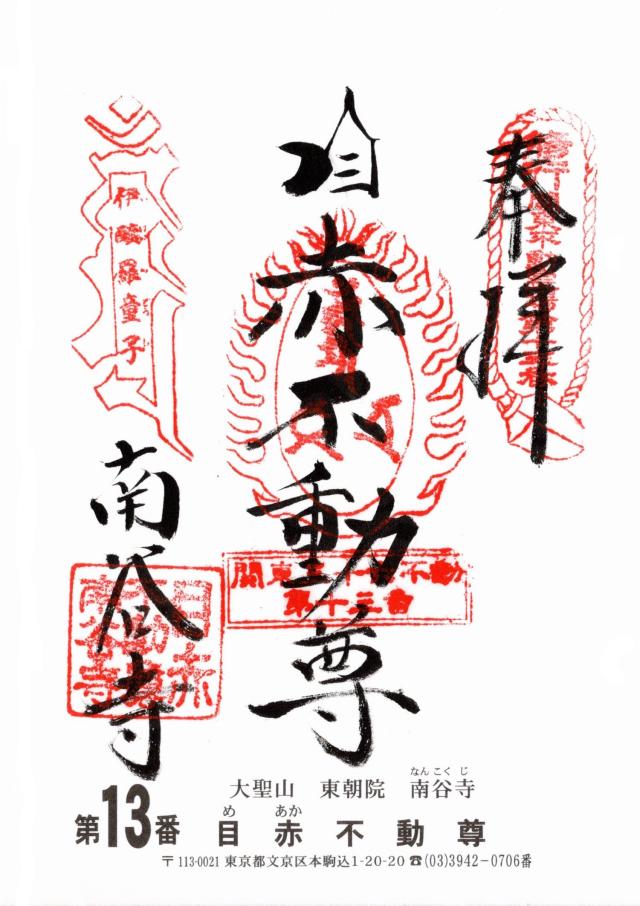 奉拝
目赤不動尊
南谷寺
伊醯羅童子
関東三十六不動
第十三番
目赤
不動尊
南谷寺
大聖山 東朝院 南谷寺
なんこくじ
第13番 目赤不動尊
め あか
〒113-0021 東京都文京区本駒込1-20-20 ☎(03)3942-0706番